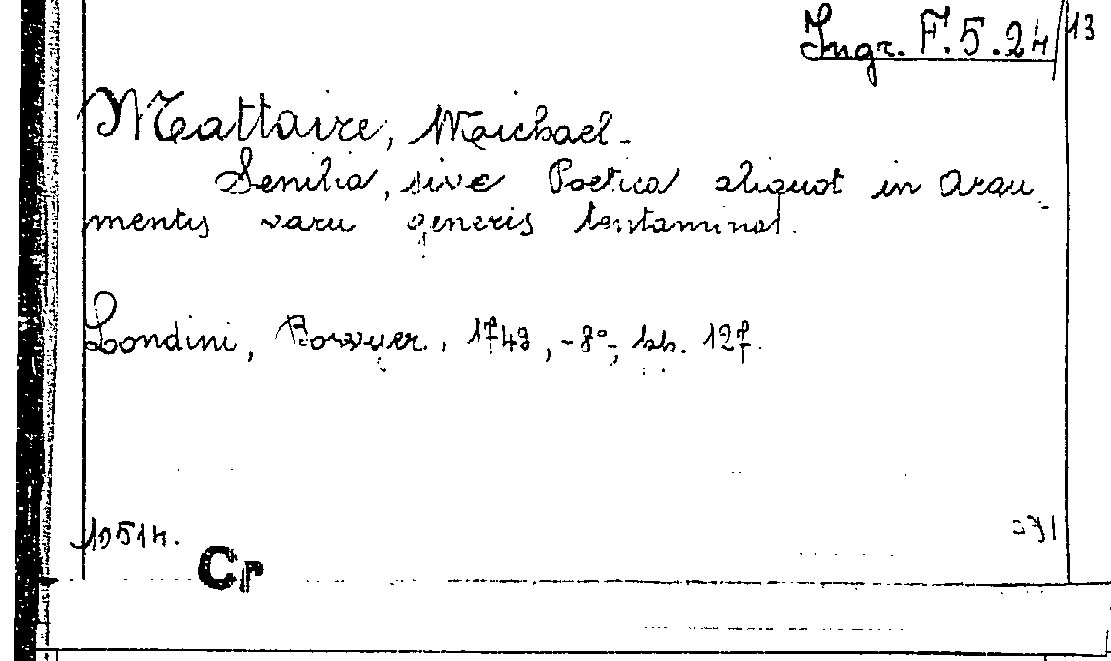 Ingr. F.5.24/13
Mattaire, Michael -
Senilia, sive Poetica aliquot in Argu-
mentis varii generis tentamina.
Londini, Bowyer, 1742, - 8°, bb. 127.
19514.
Cr